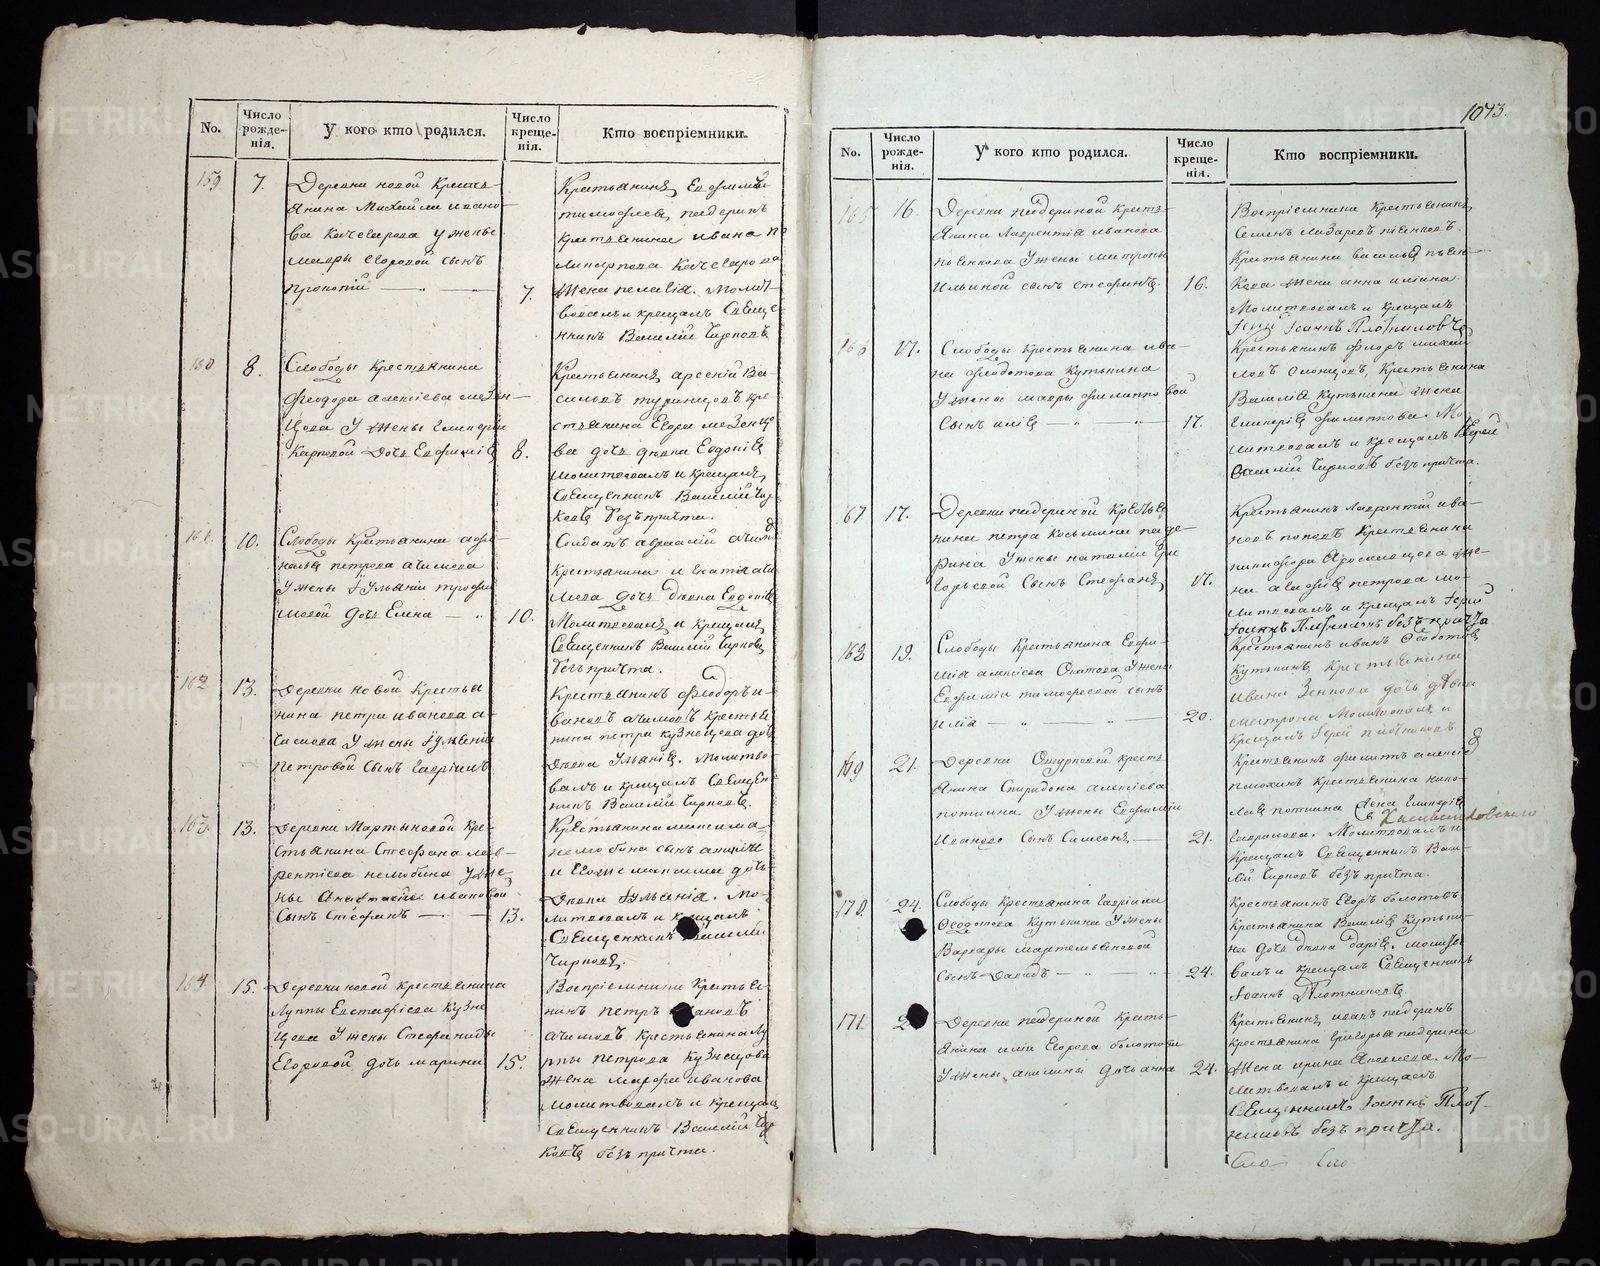 No.
Число рожде-нія.
У кого кто родился.
Число креще-нія.
Кто воспріемники.
159.
7.
Деревни новой Кресть-
янина Михайла ивано-
ва Качегарова у жены
мавры Егоровой сынъ
прокопій
7.
Крестьянинъ
тимофеевъ падеринъ
крестьянина ивана по
Качегарова
жена пелагія. Молит-
вовалъ и крещалъ Свяще-
нникъ Василій Чирковъ
160
8.
Слободы Крестьянина
Феодора алексіева
У жены Гликеріи
Карповой дочь Евфимія
8.
Крестьянинъ арсеній Ва-
сильевъ кре-
стьянина Егора
ва дочь девка Евдокія
молитвовалъ и крещалъ
Священникъ Василій Чир-
ковъ безъ причта.
161.
10.
Слободы Крестьянина
петрова ачимова
У жены Іульяніи трофи-
мовой дочь Елена
10.
Солдатъ
крестьянина игнатія ачи-
мова дочь девка Евдокія
Молитвовалъ и крещалъ
Священникъ Василій Чирковъ
безъ причта.
162
13.
Деревни новой Крестья-
нина петра иванова а-
чимова У жены
Петровой сынъ Гавріилъ
Крестьянинъ Феодоръ и-
вановъ ачимовъ крестья-
нина петра кузнецова дочь
девка Ульянія. молитво-
валъ и крещалъ Священ-
никъ Василій Чирковъ.
163.
13.
Деревни Мартыновой Кре-
стьянина Стефана лав-
рентіева немобина у же-
ны Анастасіи ивановой
Сынъ Стефанъ
13.
Крестьянина максима
сынъ
и Егоже максима дочь
Девка Іульянія. Мо-
литвовалъ и крещалъ
Священникъ Василій
Чирковъ.
164
15.
Деревни новой крестьянина
Луппы Евстафіева Кузне-
цова У жены Стефаниды
Егоровой дочь марина
15.
Воспріемники Крестья-
нинъ петръ ивановъ
ачимовъ Крестьянина Лу-
ппы петрова Кузнецова
жена марфа иванова
молитвовалъ и крещалъ
Священникъ Василій Чир-
ковъ безъ причта.
1073.
No.
Число рожде-нія.
У кого кто родился.
Число креще-нія.
Кто воспріемники.
165
16.
Деревни падериной кресть-
янина Лаврентія иванова
пьенкова У жены матроны
Ильиной сынъ стефанъ.
16.
Воспріемники крестьянинъ
Семенъ Лазаревъ пьенковъ.
Крестьянина василья пьен-
кова жена анна
Молитвовалъ и крещалъ
Іерей Іоаннъ Плотниковъ
166
17.
Слободы Крестьянина ива-
на федотова Кутькина
У жены мавры филипповой
Сынъ илія
17.
Крестьянинъ флоръ михай-
ловъ Крестьянина
Василія Кутькина жена
Гликерія филиппова. Мо-
литвовалъ и крещалъ Іерей
Василій Чирковъ безъ причта.
167
17.
Деревни падериной Крестья-
нина петра Косьмина паде-
рина У жены наталіи гри-
горьевой Сынъ Стефанъ
17.
Крестьянинъ Лаврентій ива-
новъ поповъ Крестьянина
никифора Ярославцова же-
на петрова мо-
литвовалъ и крещалъ Іерей
Іоаннъ Плотниковъ безъ причта
168
19.
Слободы Крестьянина Евфи-
мія алексіева Охотова У жены
Евфиміи тимофеевой сынъ
илія
20.
Крестьянинъ иванъ Федотовъ
Кутькинъ, крестьянина
ивана Зенкова дочь девка
матрона Молитвовалъ и
крещалъ Іерей плотниковъ
169
21.
Деревни Ошурковой кресть-
янина Спиридона алексіева
поткина У жены Евфиміи
Ивановой Сынъ Симеонъ
21.
Крестьянинъ филипъ алексіевъ
крестьянина нико-
лая поткина жена Гликерія
Гаврилова. Молитвовалъ и
крещалъ Священникъ Васи-
лій Чирковъ безъ причта.
170.
24.
Слободы Крестьянина Гавріила
Федотова Кутькина У жены
Варвары мартемьяновой
Сынъ Давидъ
24.
Крестьянинъ Егоръ болотовъ
крестьянина Василія Кутьки-
на дочь девка дарія. молитво-
валъ и крещалъ Священникъ
Іоаннъ Плотниковъ.
171.
2
Деревни падериной Кресть-
янина иліи Егорова болотова
У жены акилины дочь анна
24.
Крестьянинъ иванъ падеринъ
крестьянина Григорья падерина
Жена ирина Яковлева. Мо-
литвовалъ и крещалъ
Священникъ Іоаннъ Плот-
никовъ безъ причта.